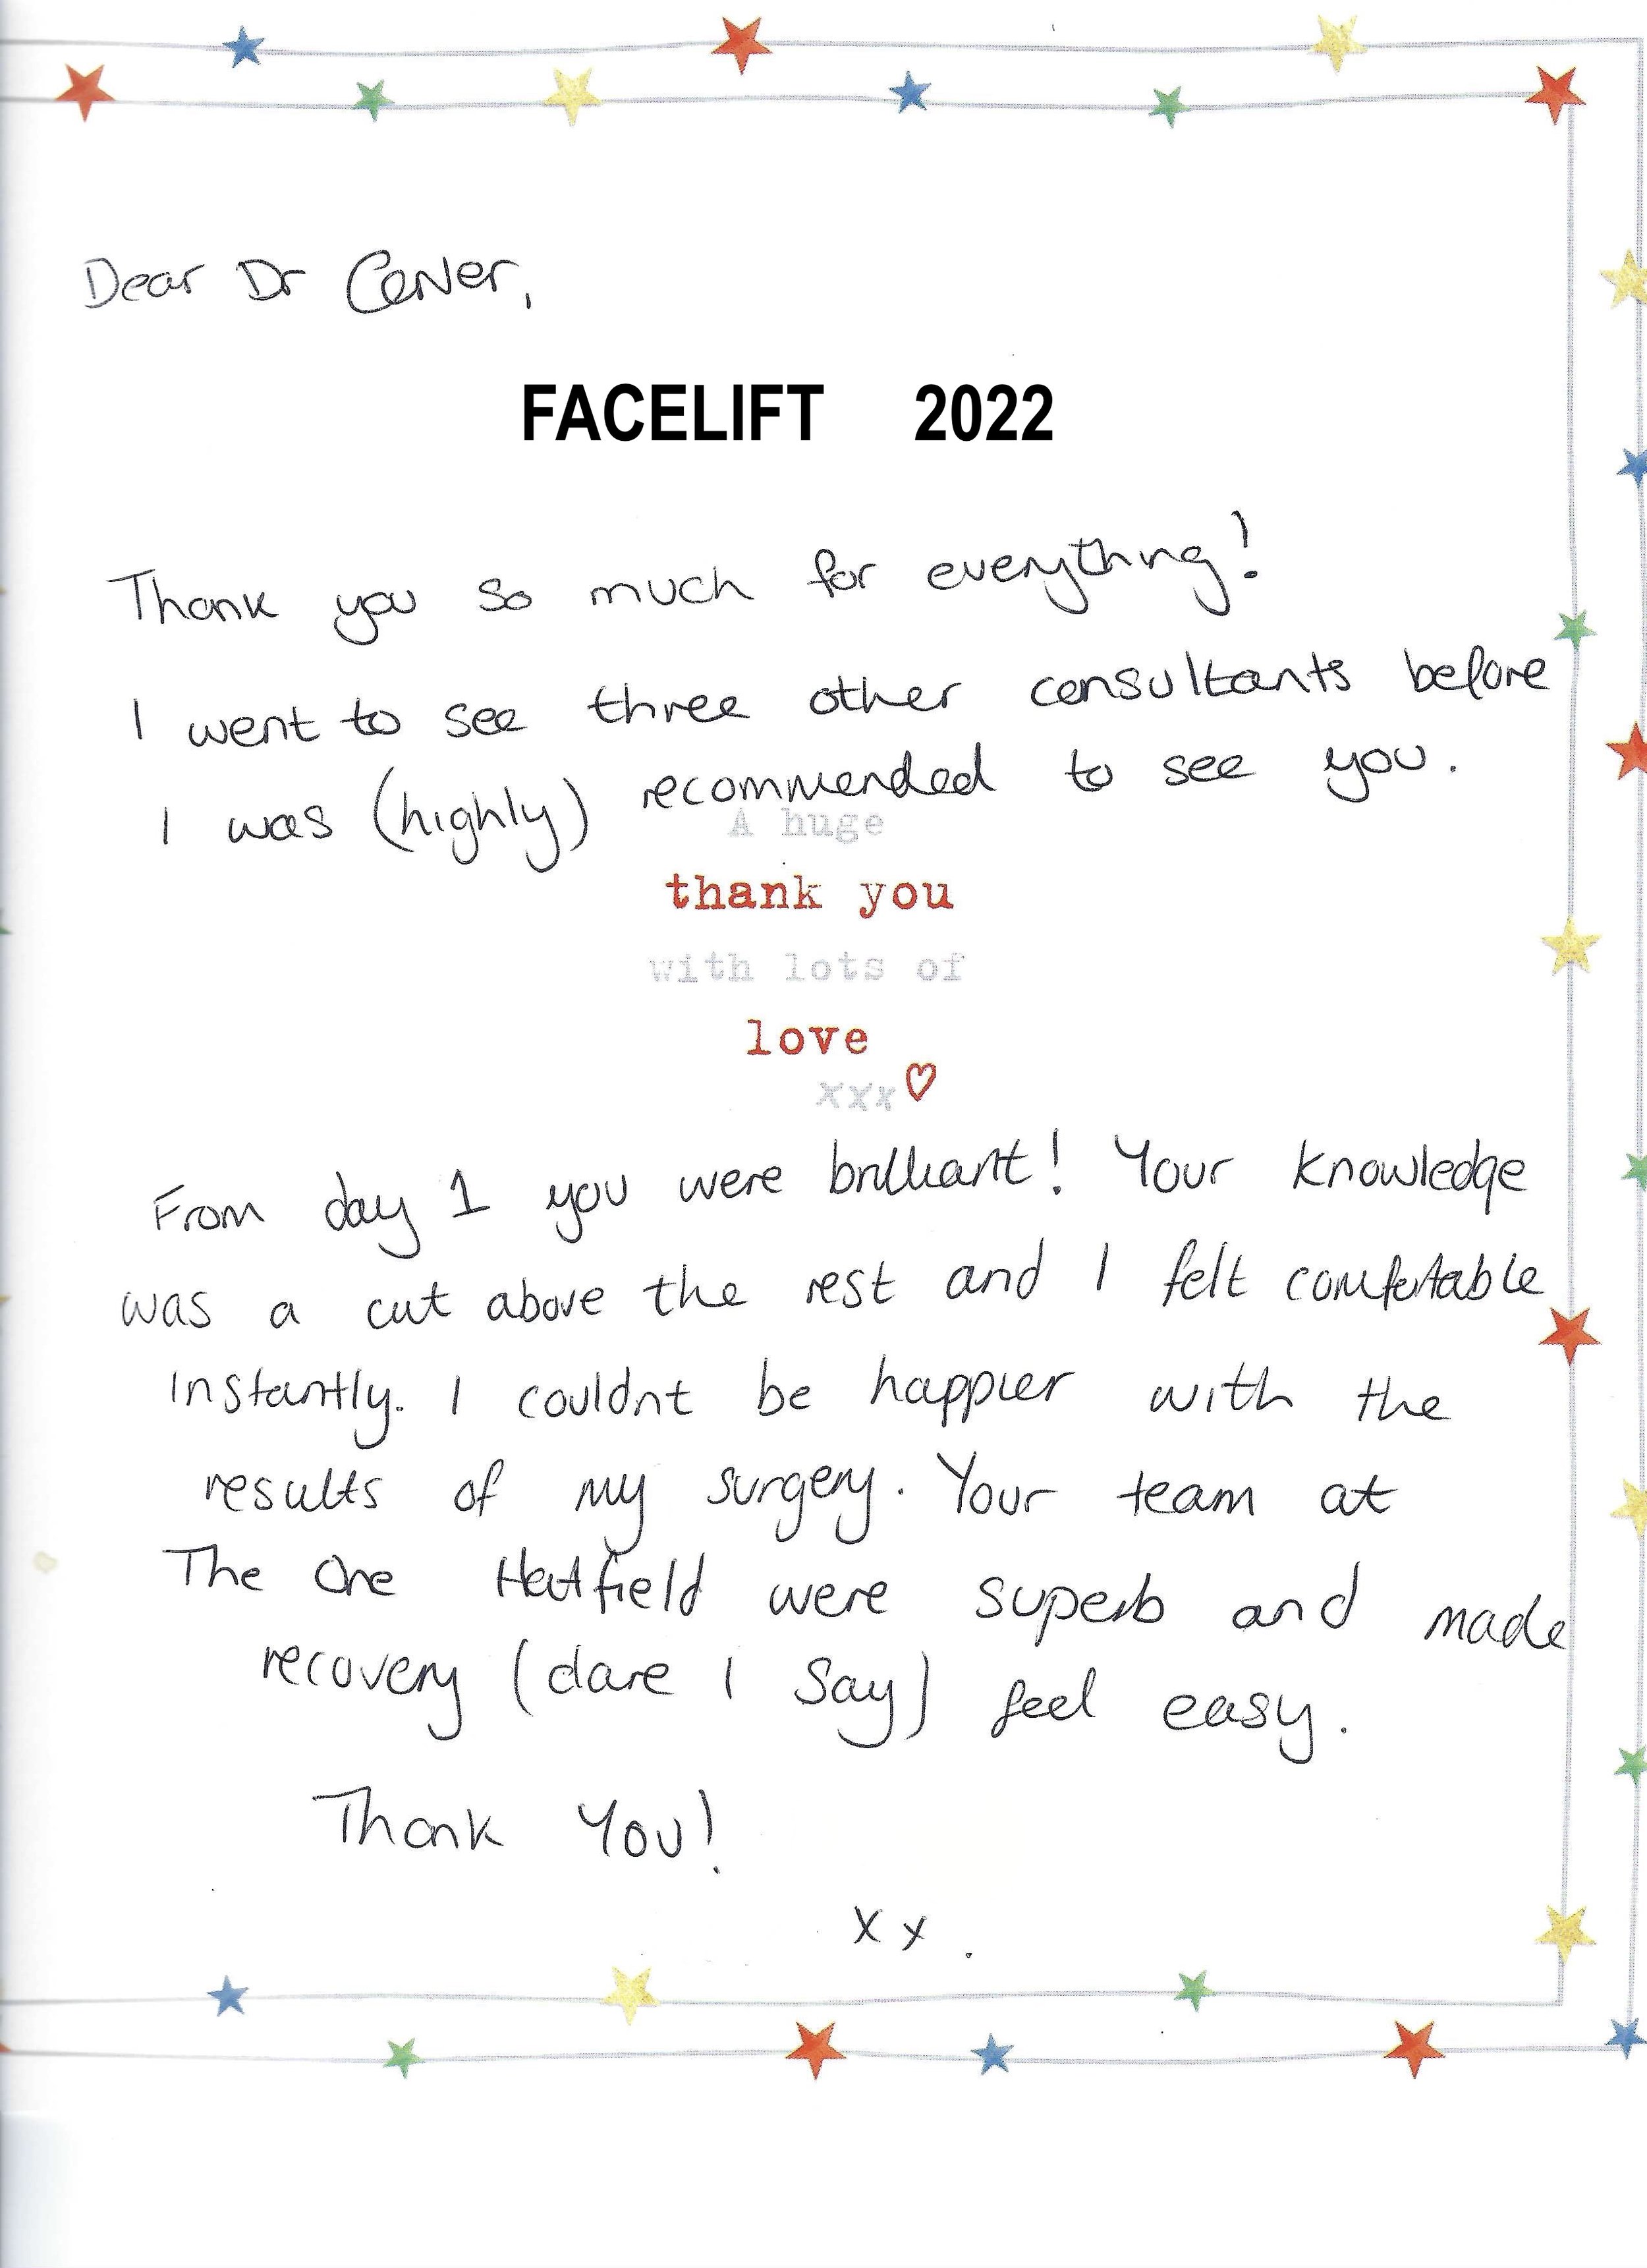 Dear Dr Carver,
FACELIFT 2022
Thank you so much for everything!
I went to see three other consultants before
I was (highly) recommended to see you.
A huge
thank you
with lots of
love
xxx♡
From day 1 you were brilliant! Your knowledge
was a cut above the rest and I felt comfortable
instantly. I couldnt be happier with the
results of my surgery. Your team at
The One Hatfield were superb and made
recovery (dare I say) feel easy.
Thank You!
xx.